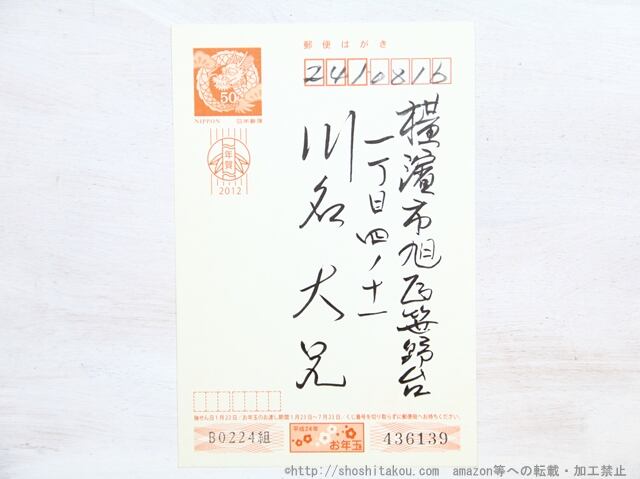 郵便はがき
2410816
50
NIPPON 日本郵便
年賀
2012
横濱市旭区笹野台
一丁目四ノ十一
川名大兄
抽せん日1月22日/お年玉のお渡し期間1月23日~7月23日/くじ番号を切り取らずに郵便局へお持ちください。
B0224組
平成24年
お年玉
436139
©http://shoshitakou.com amazon等への転載・加工禁止